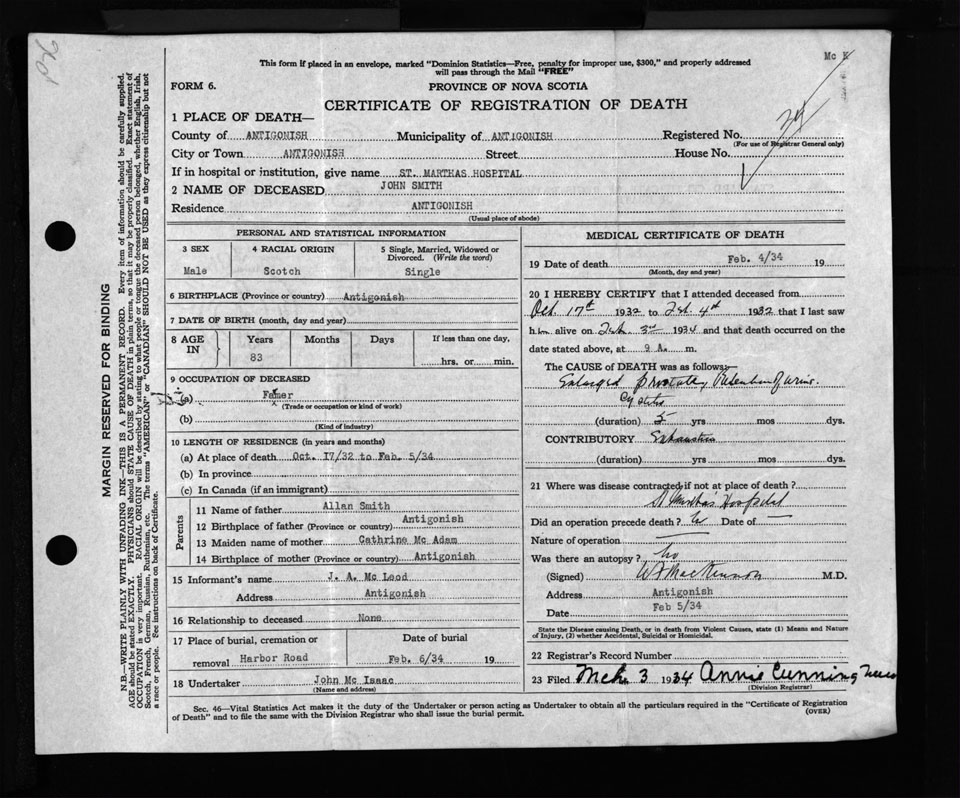 Mc K
This form if placed in an envelope, marked "Dominion Statistics—Free, penalty for improper use, $300," and properly addressed
will pass through the Mail "FREE"
FORM 6.
PROVINCE OF NOVA SCOTIA
CERTIFICATE OF REGISTRATION OF DEATH
1 PLACE OF DEATH—
County of ANTIGONISH Municipality of ANTIGONISH Registered No.
(For use of Registrar General only)
City or Town ANTIGONISH Street House No.
If in hospital or institution, give name ST. MARTHAS HOSPITAL
2 NAME OF DECEASED JOHN SMITH
Residence ANTIGONISH
(Usual place of abode)
MARGIN RESERVED FOR BINDING
N.B.—WRITE PLAINLY WITH UNFADING INK—THIS IS A PERMANENT RECORD. Every item of information should be carefully supplied.
AGE should be stated EXACTLY. PHYSICIANS should STATE CAUSE OF DEATH in plain terms, so that it may be properly classified. Exact statement of
OCCUPATION is very important. RACIAL ORIGIN will be described by stating to what people or tongue the deceased person belonged, whether English, Irish,
Scotch, French, German, Russian, Ruthenian, etc. The terms "AMERICAN" or "CANADIAN" SHOULD NOT BE USED as they express citizenship but not
a race or people. See instructions on back of Certificate.
PERSONAL AND STATISTICAL INFORMATION
3 SEX
Male
4 RACIAL ORIGIN
Scotch
5 Single, Married, Widowed or
Divorced. (Write the word)
Single
6 BIRTHPLACE (Province or country) Antigonish
7 DATE OF BIRTH (month, day and year)
8 AGE IN
Years Months Days If less than one day,
83 hrs. or min.
9 OCCUPATION OF DECEASED
(a) Farmer
(Trade or occupation or kind of work)
(b)
(Kind of industry)
10 LENGTH OF RESIDENCE (in years and months)
(a) At place of death Oct. I7/32 to Feb. 5/34
(b) In province
(c) In Canada (if an immigrant)
Parents
11 Name of father Allan Smith
12 Birthplace of father (Province or country) Antigonish
13 Maiden name of mother Cathrine Mc Adam
14 Birthplace of mother (Province or country) Antigonish
15 Informant's name J. A. Mc Leod
Address Antigonish
16 Relationship to deceased None
17 Place of burial, cremation or
removal Harbor Road
Date of burial
Feb. 6/34 19
18 Undertaker John Mc Isaac
(Name and address)
MEDICAL CERTIFICATE OF DEATH
19 Date of death Feb. 4/34 19
(Month, day and year)
20 I HEREBY CERTIFY that I attended deceased from
Oct. 17th 1932 to Feb. 4th 1932 that I last saw
him alive on Feb. 3rd 1934 and that death occurred on the
date stated above, at 9 A. m.
The CAUSE of DEATH was as follows:
Enlarged prostate, Retention of urine.
Cystitis
(duration) 5 yrs mos dys.
CONTRIBUTORY Exhaustion
(duration) yrs mos dys.
21 Where was disease contracted if not at place of death?
St Martha's Hospital
Did an operation precede death? Date of —
Nature of operation —
Was there an autopsy? no
(Signed) W F MacKinnon M.D.
Address Antigonish
Date Feb 5/34
State the Disease causing Death, or in death from Violent Causes, state (1) Means and Nature
of Injury, (2) whether Accidental, Suicidal or Homicidal.
22 Registrar's Record Number
23 Filed Mch 3 1934 Annie Cunningham
(Division Registrar)
Sec. 46—Vital Statistics Act makes it the duty of the Undertaker or person acting as Undertaker to obtain all the particulars required in the "Certificate of Registration
of Death" and to file the same with the Division Registrar who shall issue the burial permit.
(OVER)